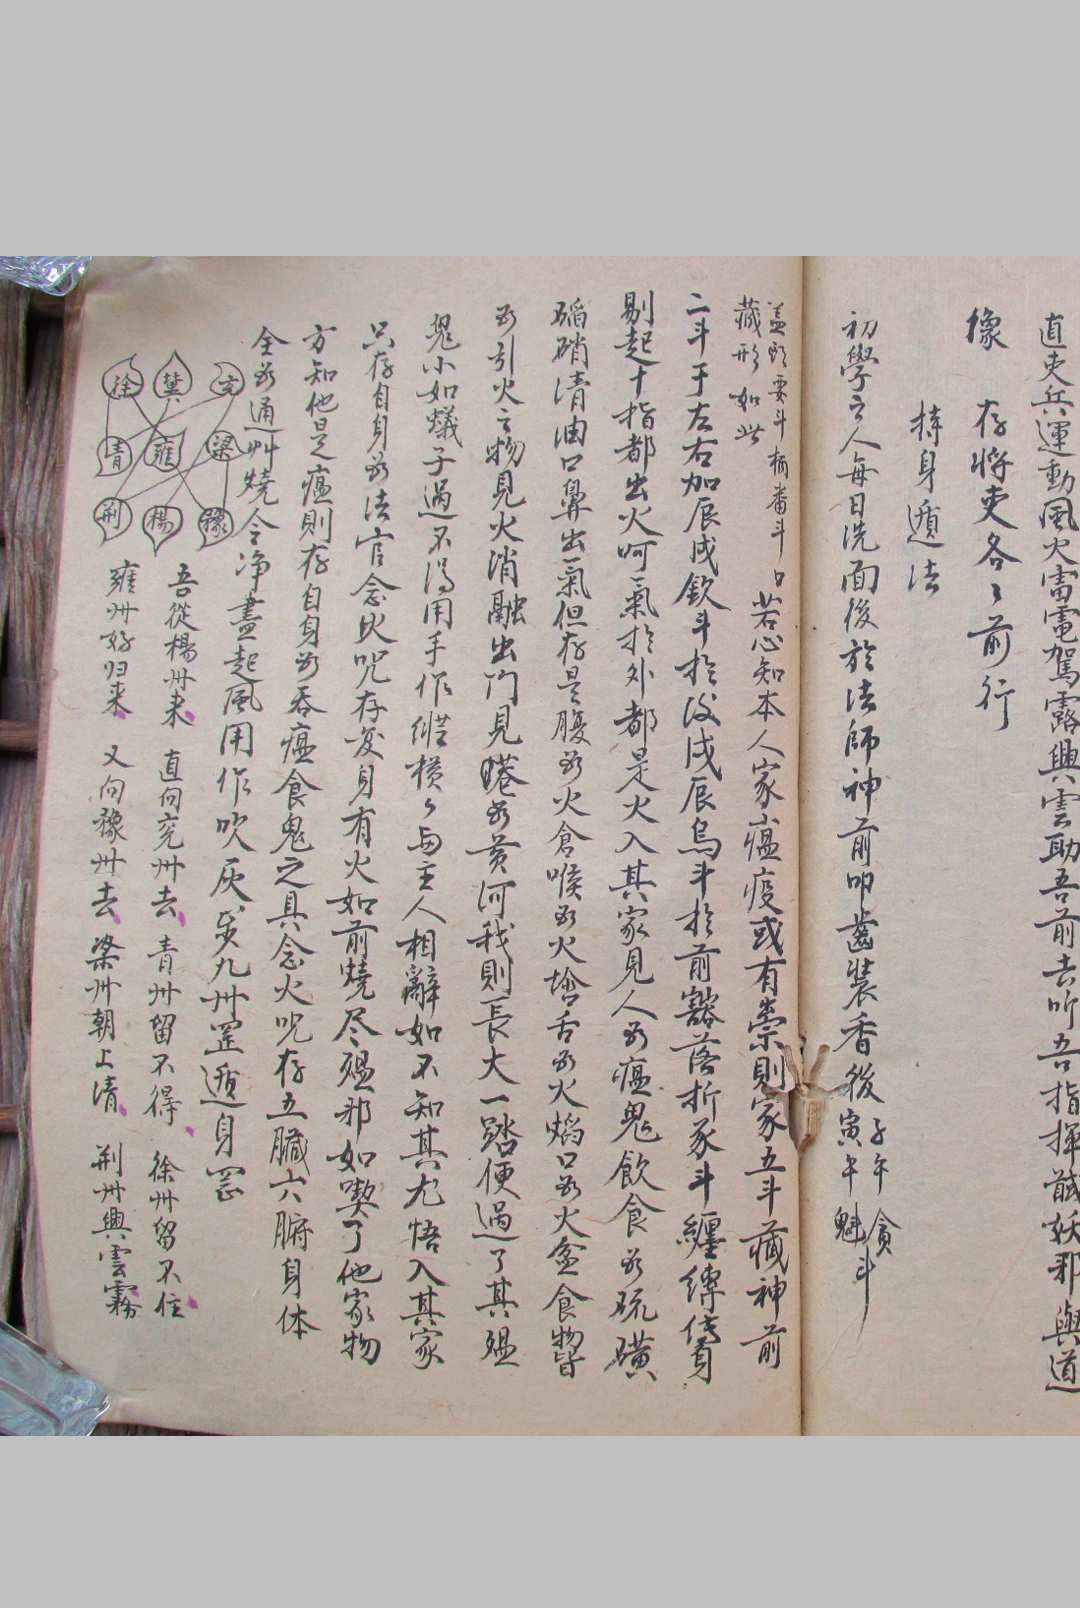 直吏兵運動風火雷電駕露興雲助吾前去听吾指揮馘妖邪與道
豫 存將吏各〻前行
持身遁法
初學之人每日洗面後於法師神前叩齒裝香後寅午子午魁貪斗
蓋頭要斗柄番斗口
藏形如此
若心知本人家瘟疫或有祟則家五斗藏神前
二斗于左右加辰戌欽斗於後戌辰烏斗於前豁落折豕斗纏縛
剔起十指都出火呵氣於外都是火入其家見人為瘟鬼飲食為硫磺
硝清油口鼻出氣但存是腹為火倉喉為火舌為火焰口為火盆食物皆
為引火之物見火消融出門見為黃河我則長大一踏便過了其瘟
鬼小如蟻子過不得用手作縱橫〻与主人相辭如不知其尤悟入其家
只存自身為法官念火咒存変身有火如前燒尽瘟邪如喫了他家物
方知他是瘟則存自身為吞瘟食鬼之具念火咒存五臟六腑身体
全為通燒令净盡起風用作吹灰步九州罡遁身罡
玄 冀 徐
梁 雍 青
豫 楊 荊
吾從楊州来 直向兗州去 青州留不得 徐州留不住
雍州好归来 又向豫州去 梁州朝上清 荊州興雲霧